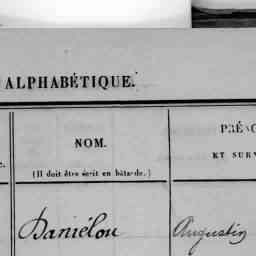 ALPHABÉTIQUE.
NOM.
(Il doit être écrit en bâtarde.)
ET
Daniélou
Augustin